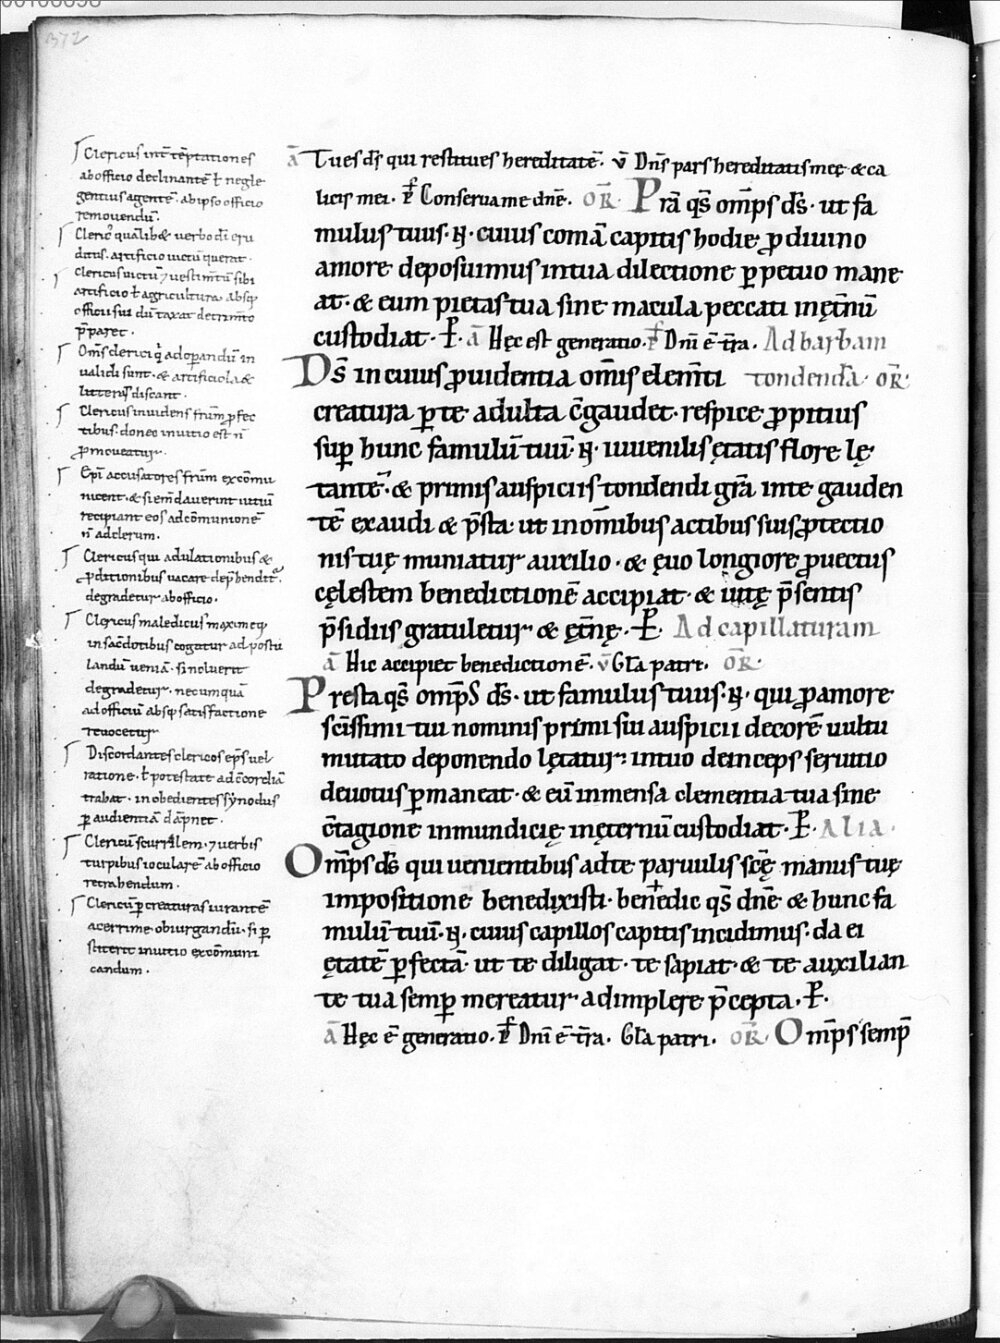 00100098
372
Clericus int̄ tēptationes
ab officio declinantē ł negle
gentius agentē. ab ipso officio
remouendū.
Cleric᷒ qualib& uerbo dī eru
ditus. artificio uictū querat.
Clericus uictū ⁊ uestimtū sibi
artificio ł agricultura absq;
officii sui dū taxat detrimto
p̄paret.
Om̄s clerici q̇ ad opandū in
ualidi sunt. & artificiola &
litteras discant.
Clericus inuidens frūm ꝓfec
tibus. donec in uitio est n̄
ꝓmoueatur.
Ep̄i accusatores frūm excōmu
nicent. & si em̄dauerint uitiū
recipiant eos ad cōmunionē
n̄ ad clerum.
Clericus qui adulationibus &
ꝓditionibus uacare dep̄hendit᷒.
degradetur ab officio.
Clericus maledicus maxime q;
in sacdotibus cogatur ad postu
landū ueniā. si noluerit
degradetur. necumquā
ad officiū absq; satisfactione
reuocetur
Discordantes clericos ep̄s uel
ratione. ł potestate ad c̄cordiā
trahat. inobedientes synodus
ꝑ audientiā dāpnet.
Clericū scurrilem. ⁊ uerbis
turpibus ioculare᷒ ab officio
retrahendum.
Clericū ꝑ creaturas iurantē
acerrime obiurgandū. si ꝑ
stiterit in uitio excōmuni
candum.
ā Tu es ds̄ qui restitues hereditatē. v̄ Dn̄s pars hereditatis meę & ca
licis mei. p̄ Conserua me dn̄e. OR̄. Prā qs̄ omp̄s ds̄. ut fa
mulus tuus. N. cuius comā capitis hodie ꝓ diuino
amore deposuimus in tua dilectione ꝑpetuo mane
at. & eum pietas tua sine macula peccati in ęt̄nū
custodiat. P. ā Hęc est generatio. p̄ Dn̄i ē t̄ra. Ad barbam
Ds̄ in cuius ꝓuidentia om̄is elem̄ti tondendā. OR̄.
creatura ꝑ te adulta c̄gaudet. respice ꝓpitius
suꝑ hunc famulū tuū. N. iuuenilis ętatis flore lę
tantē. & primis auspiciis tondendi gr̄a in te gauden
tē exaudi & p̄sta. ut in om̄ibus actibus suis ꝓtectio
nis tuę muniatur auxilio. & ęuo longiore ꝓuectus
cęlestem benedictionē accipiat. & uitę p̄sentis
p̄sidiis gratuletur & ęt̄nę. P. Ad capillaturam
ā Hic accipiet benedictionē. v̄ Gl̄a patri. OR̄.
Presta qs̄ omp̄s ds̄. ut famulus tuus. N. qui ꝓ amore
sc̄issimi tui nominis primi sui auspicii decorē uultu
mutato deponendo lętatur: in tuo deinceps seruitio
deuotus ꝑmaneat. & eū inmensa clementia tua sine
c̄tagione inmundicię in ęternū custodiat. P. Alia.
Omp̄s ds̄ qui uenientibus ad te paruulis sc̄ę manus tuę
impositione benedixisti. bene✝dic qs̄ dn̄e & hunc fa
mulū tuū. N. cuius capillos capitis incidimus. da ei
ętatē ꝑfectā. ut te diligat. te sapiat. & te auxilian
te tua semꝑ mereatur adimplere p̄cepta. P.
ā Hęc ē generatio. p̄ Dn̄i ē t̄ra. Gl̄a patri. OR̄. Omp̄s semꝑ